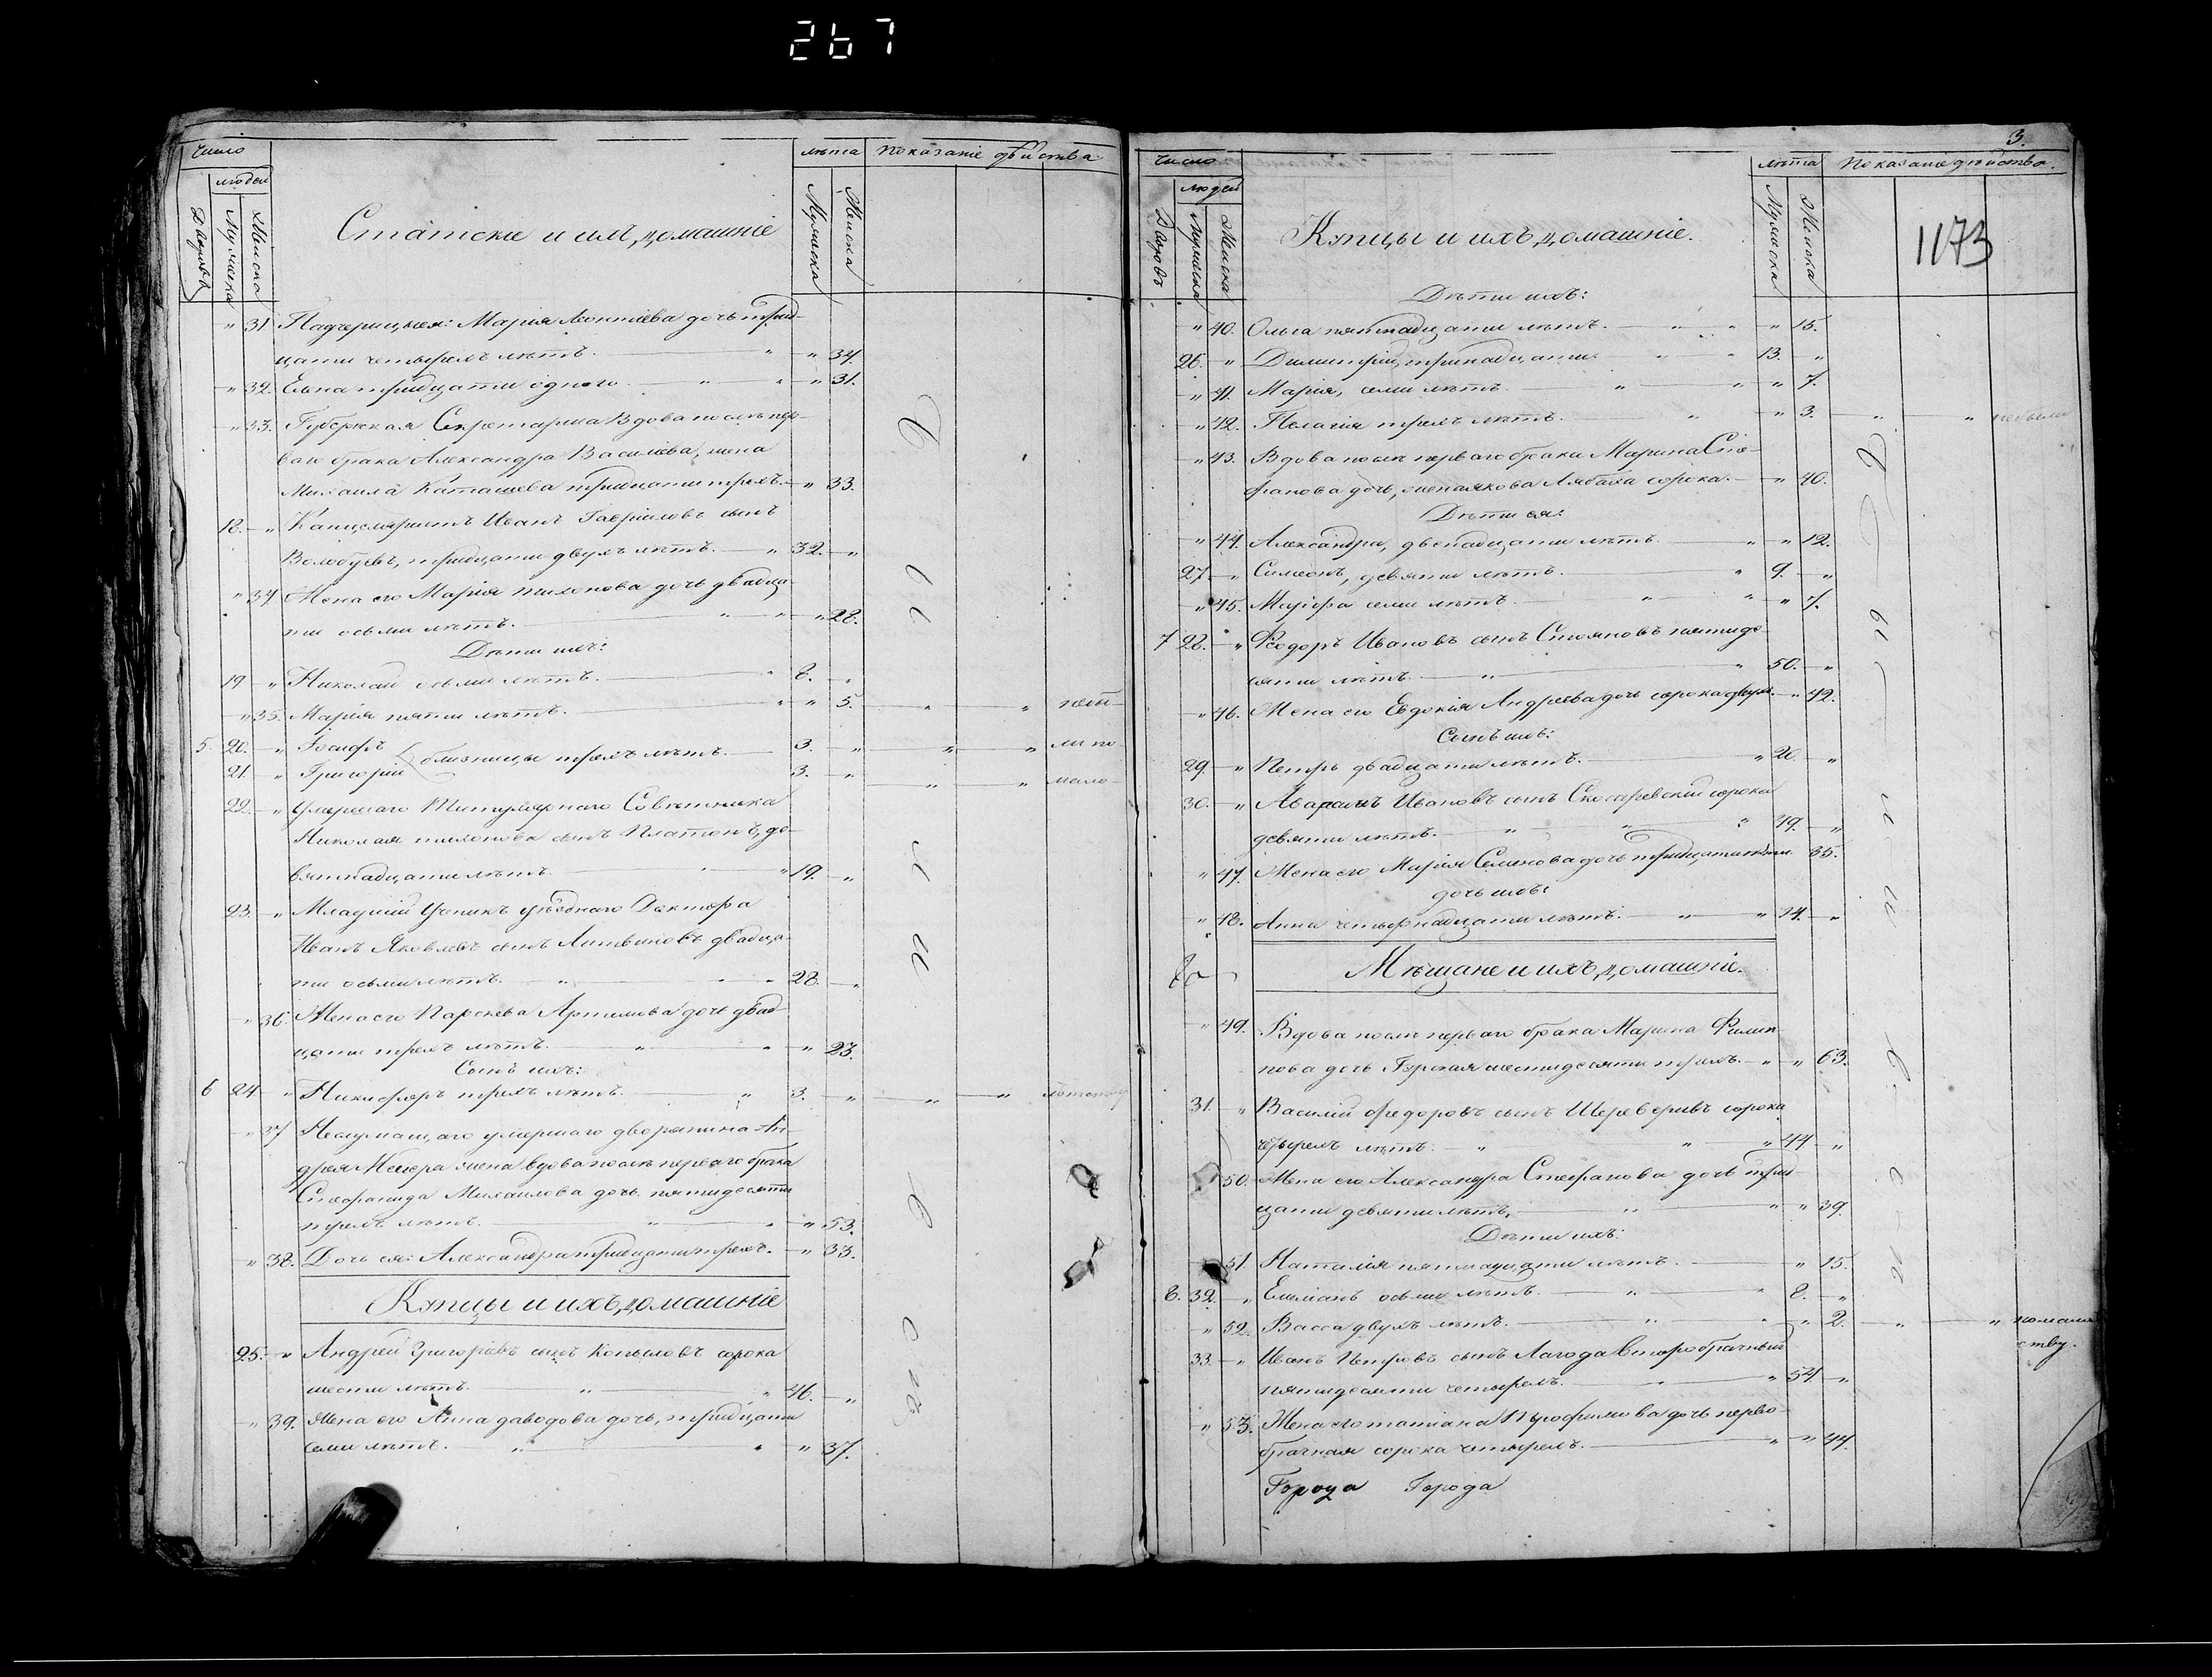 267
Число
людей
Дворовъ
Мужеска
Женска
Статскіе и ихъ домашніе
лѣта
Мужеска
Женска
Показаніе дѣйства
" 31. Падчерицы ея: Марія Леонтіева дочь трид-
цати четырехъ лѣтъ. " " 34
" 32. Елена тридцати одного " " " 31.
" 33. Губернская Секретарша Вдова послѣ пер-
ваго брака Александра Василіева, жена
Михаила Каташева тридцати трехъ. " 33.
18. " Канцеляристъ Иванъ Гавріиловъ сынъ
Волобуевъ, тридцати двухъ лѣтъ. " 32. "
" 34 Жена его Марія Тихонова дочь двадца-
ти осьми лѣтъ. " " " 28.
Дѣти ихъ:
19 " Николай осьми лѣтъ. " 8. "
" 35. Марія пяти лѣтъ. " " 5. " " небы-
5. 20. " Іосифъ
близницы трехъ лѣтъ. 3. " " " ли по
21 " Григорій 3. " " " мало-
22. " Умершаго Титулярнаго Совѣтника
Николая Тихонова сынъ Платонъ, де-
вятнадцати лѣтъ. " " 19. "
23. " Младшій Ученикъ уѣзднаго Доктора
Иванъ Яковлевъ сынъ Литвиновъ двадца-
ти осьми лѣтъ. " " " 28. "
" 36. Жена его Параскева Артемова дочь двад-
цати трехъ лѣтъ. " " " 23.
Сынъ ихъ:
6 24. " Никифоръ трехъ лѣтъ. " 3. " " "
" 37 Неслужащаго умершаго дворянина Ан-
дрея жена вдова послѣ перваго брака
Стефанида Михаилова дочь пятидесяти
трехъ лѣтъ. " " " 53.
" 38. Дочь ея: Александра тридцати трехъ. " 33.
Купцы и ихъ домашніе
25. " Андрей Григоріевъ сынъ Копыловъ сорока
шести лѣтъ. " " 46. "
" 39. Жена его Анна Давидова дочь, тридцати
семи лѣтъ. " " " 37.
3.
Число
людей
Дворовъ
Мужеска
Женска
Купцы и ихъ домашніе.
лѣта
Мужеска
Женска
Показаніе дѣйства.
1173
Дѣти ихъ:
" 40. Ольга пятнадцати лѣтъ. " " " 15.
26. " Димитрій, тринадцати " " 13. "
" 41. Марія, семи лѣтъ. " " " 7.
" 42. Пелагія трехъ лѣтъ. " " 3. " " небыли
" 43. Вдова послѣ перваго брака Марина Сте-
фанова дочь, сорока. " 40.
Дѣти ея:
" 44. Александра, двенадцати лѣтъ. " " 12.
27 " Симеонъ, девяти лѣтъ. " 9. "
" 45. Марфа семи лѣтъ. " " " 7.
7 28. " Феодоръ Ивановъ сынъ Стояновъ пятиде-
сяти лѣтъ. " " 50. "
" 46. Жена его Евдокія Андреева дочь сорока двухъ. " 42.
Сынъ ихъ:
29. " Петръ двадцати лѣтъ. " 20. "
30. " Ивановъ сынъ сорока
девяти лѣтъ. " " " 49. "
" 47. Жена его Марія Семенова дочь тридцати пяти 35.
дочь ихъ:
" 48. Анна четырнадцати лѣтъ. " " 14. "
Мѣщане и ихъ домашніе.
" 49. Вдова послѣ перваго брака Марина Филип-
пова дочь шестидесяти трехъ. " " 63.
31. " Василій Федоровъ сынъ сорока
четырехъ лѣтъ. " " " 44 "
50. Жена его Александра Стефанова дочь трид-
цати девяти лѣтъ, " " " 39.
Дѣти ихъ:
51. Наталія пятнадцати лѣтъ. " 15.
8. 32. " Емиліанъ осьми лѣтъ. " " 8. "
" 52. Васса двухъ лѣтъ. " " " 2. " " помалол
ству.
33. " Иванъ Петровъ сынъ Лагода второбрачный
пятидесяти четырехъ. " " 54. "
" 53. Жена его Татіана дочь перво-
брачная сорока четырехъ. " " 44.
Города Города